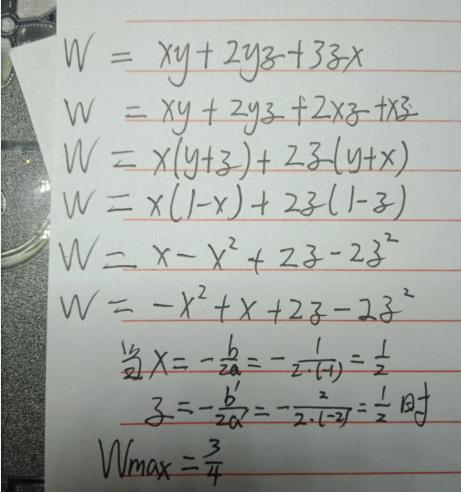 W = xy+2yz+3zx
W = xy+2yz+2xz+xz
W = x(y+z)+2z(y+x)
W = x(1-x)+2z(1-z)
W = x-x²+2z-2z²
W = -x²+x+2z-2z²
当x=-b/2a=-1/2·(-1)=1/2
z=-b'/2a'=-2/2·(-2)=1/2时
Wmax=3/4